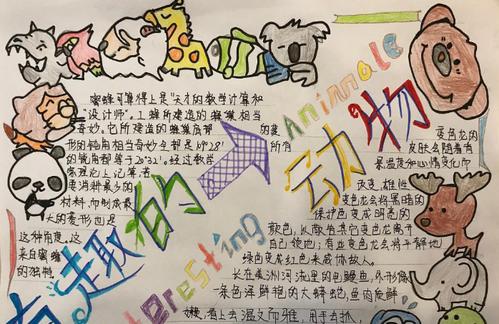 蜜蜂可算得上是“天才的数学计算和
“设计师”。工蜂所建造的蜂巢相当
奇妙。它所建造的蜂巢底部
形的钝角相当奇妙全部是109°28′
的锐角都等于70°31′。经过数学
家理论上记算，若
要消耗最少的
材料，而制成最
大的菱形也是
这种角度。这
来自蜜蜂
的独特
的菱
所有
有趣的
动物
Interesting
Animale
变色龙的
皮肤会随着背
景温度和心情变化而
改变。雄性
变色龙会将黑暗的
保护色变成明亮的
颜色，以敝有其它变色龙离开
自己领地；有些变色龙会将平静地
绿色变成红色来威胁敌人。
长在美洲河流里的电鳗鱼，外形像
一条色泽鲜艳的大蟒蛇，鱼肉肥鲜
嫩，看上去温文而雅，用手去抓，